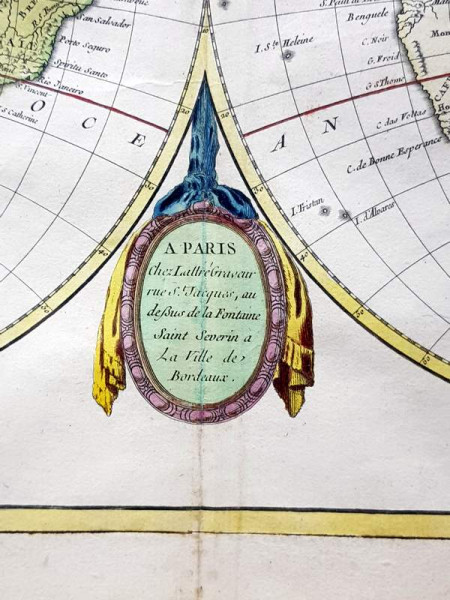 BRE
San Salvador
Porto Seguro
Spiritu Santo
Rio Janeiro
S. Vincent
S. Catherine
O C E A N
I. Ste. Heleine
Benguele
C. Noir
G. S. Thomé
C. das Voltas
C. de Bonne Esperance
I. Tristan
I. d'Alvarez
A PARIS
Chez Lattré Graveur
rue St. Jacques, au
dessus de la Fontaine
Saint Severin a
La Ville de
Bordeaux.